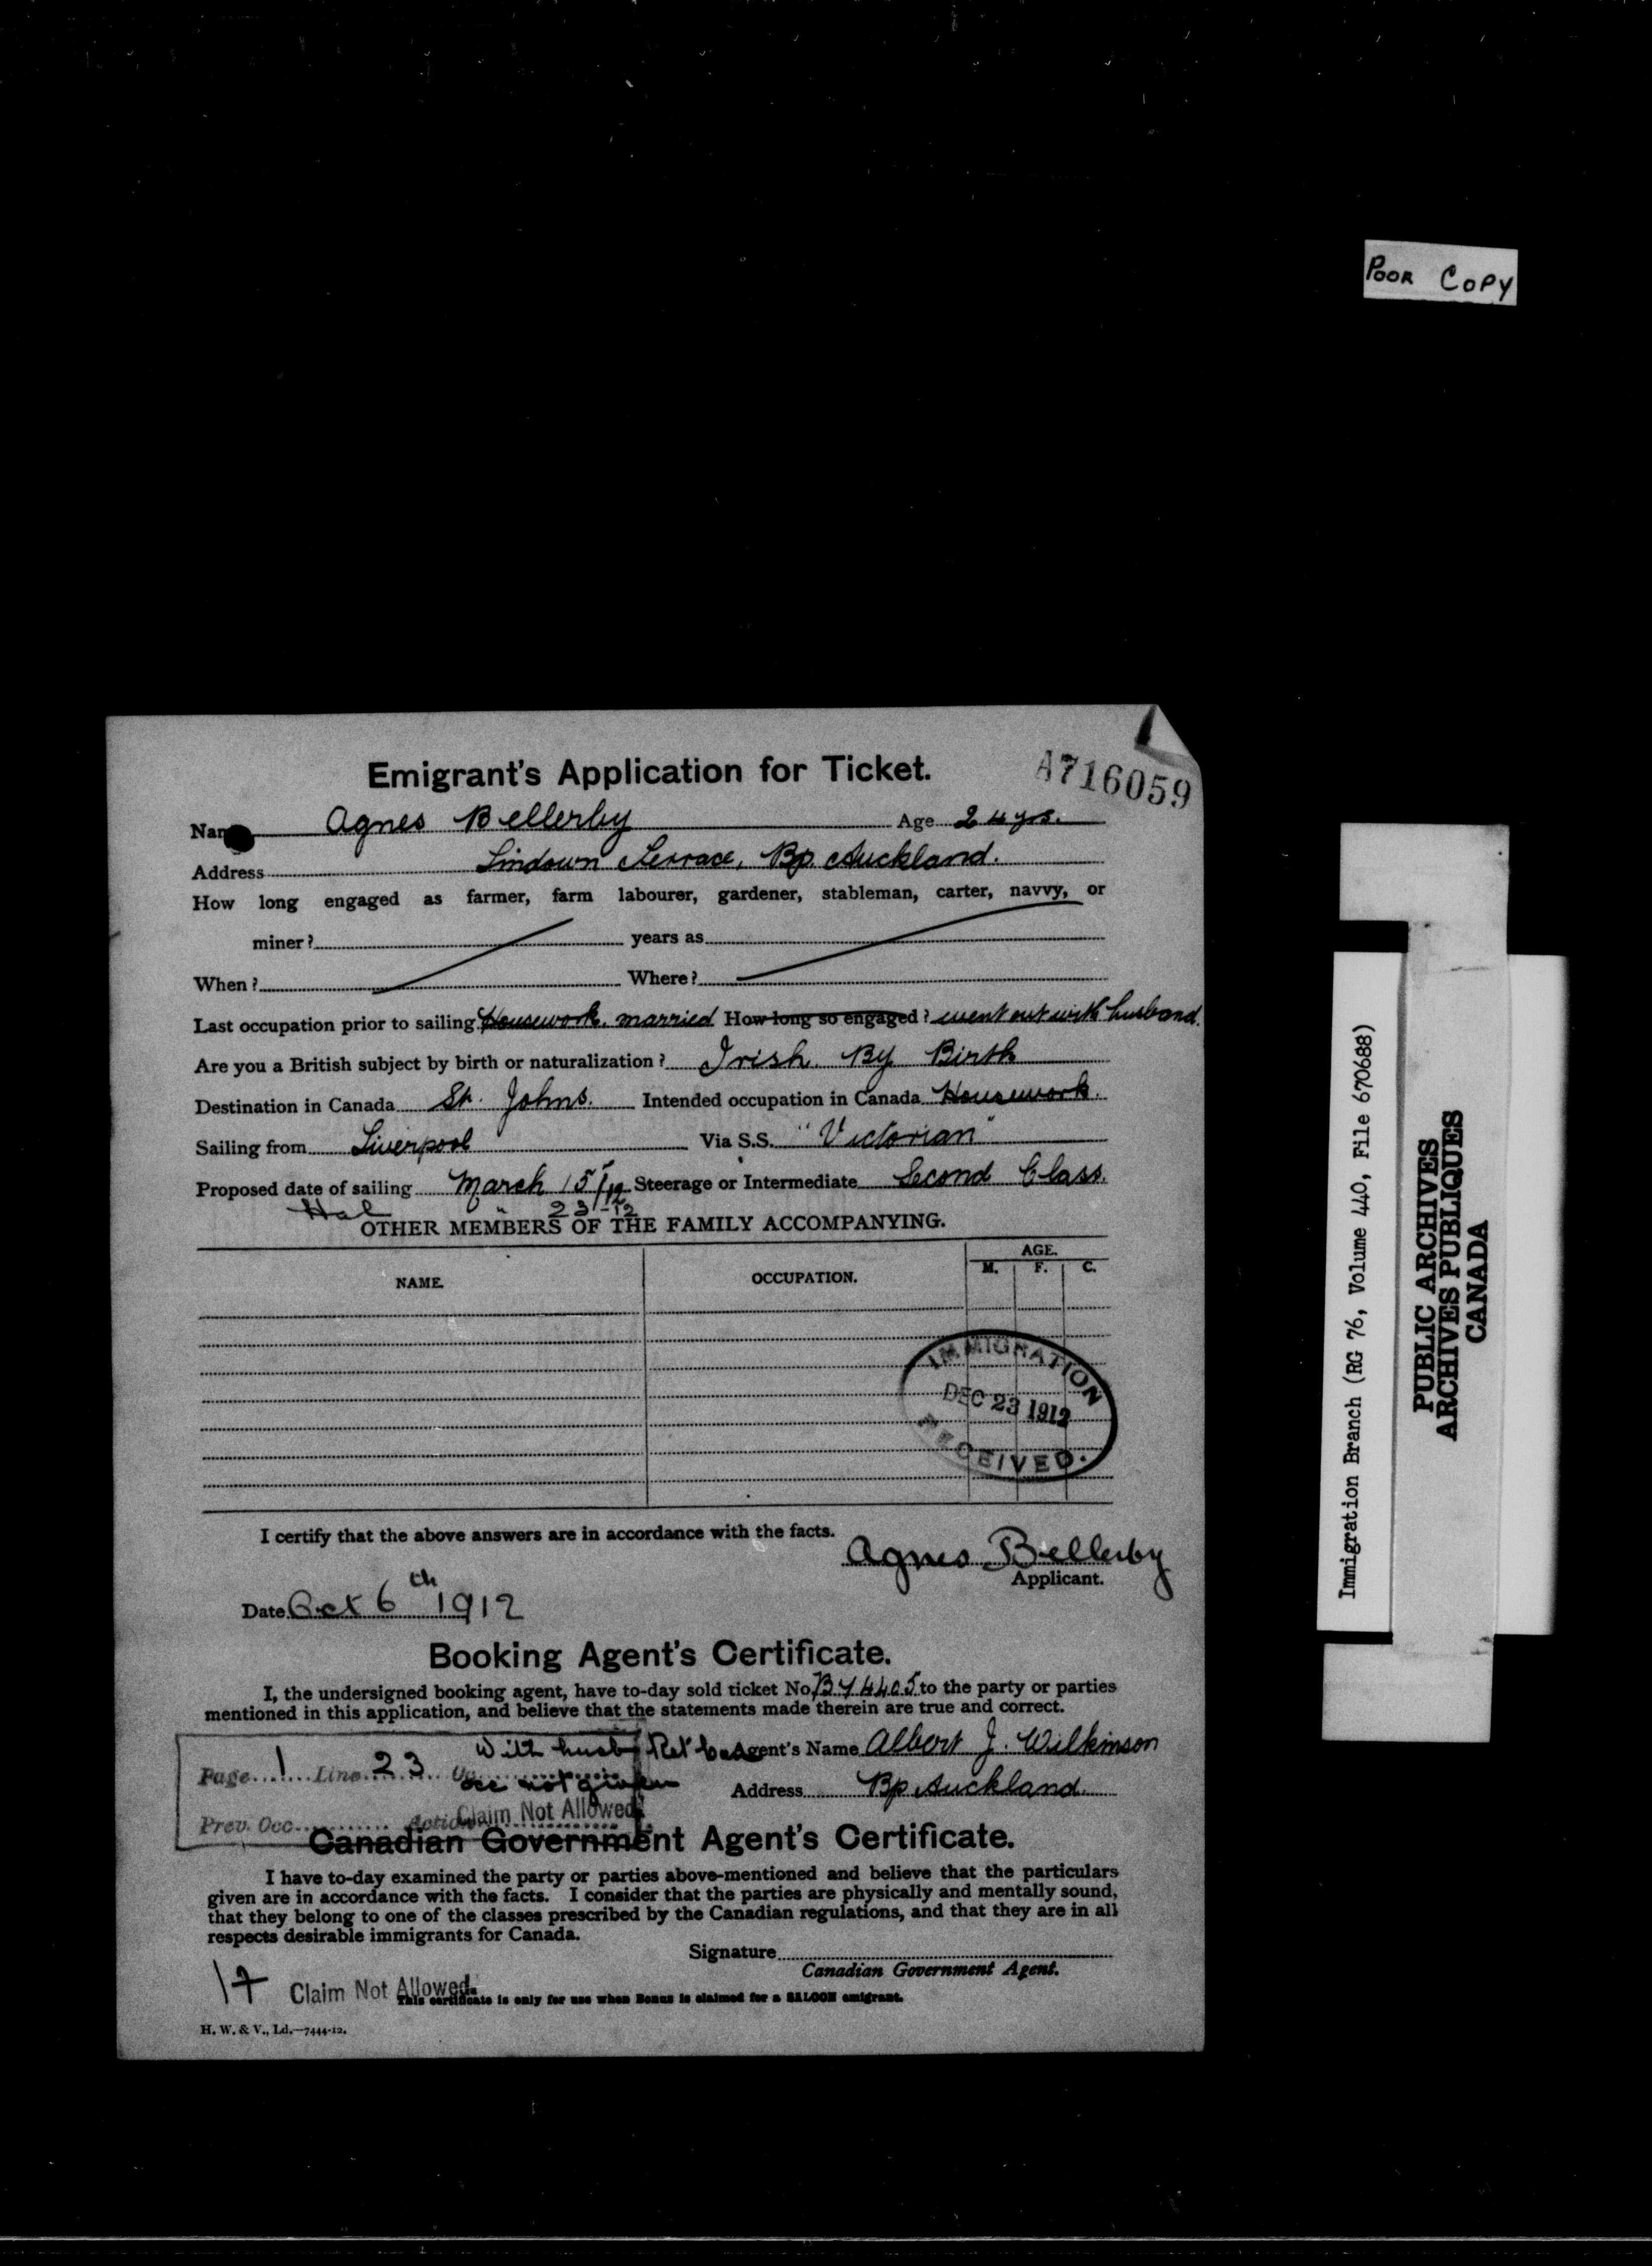 POOR COPY
Emigrant's Application for Ticket.
A716059
Name Agnes Bellerby Age 24 yrs.
Address Lindown Terrace, Bp. Auckland.
How long engaged as farmer, farm labourer, gardener, stableman, carter, navvy, or
miner? years as
When? Where?
Last occupation prior to sailing Housework. married How long so engaged? went out with husband.
Are you a British subject by birth or naturalization? Irish. By Birth
Destination in Canada St. Johns. Intended occupation in Canada Housework.
Sailing from Liverpool Via S.S. "Victorian"
Proposed date of sailing March 15/12 Steerage or Intermediate Second Class.
Hal " 23-12
OTHER MEMBERS OF THE FAMILY ACCOMPANYING.
NAME. OCCUPATION. AGE.
M. F. C.
IMMIGRATION
DEC 23 1912
RECEIVED.
I certify that the above answers are in accordance with the facts.
Agnes Bellerby
Applicant.
Date Oct 6th 1912
Booking Agent's Certificate.
I, the undersigned booking agent, have to-day sold ticket No. BY4405 to the party or parties
mentioned in this application, and believe that the statements made therein are true and correct.
With husb Ret Agent's Name Albert J. Wilkinson
Page 1 Line 23 occ not given
Address Bp Auckland
Prev. Occ. Action Claim Not Allowed.
Canadian Government Agent's Certificate.
I have to-day examined the party or parties above-mentioned and believe that the particulars
given are in accordance with the facts. I consider that the parties are physically and mentally sound,
that they belong to one of the classes prescribed by the Canadian regulations, and that they are in all
respects desirable immigrants for Canada.
Signature
Canadian Government Agent.
17 Claim Not Allowed.
This certificate is only for use when Bonus is claimed for a SALOON emigrant.
H. W. & V., Ld.—7444-12.
Immigration Branch (RG 76, Volume 440, File 670688)
PUBLIC ARCHIVES
ARCHIVES PUBLIQUES
CANADA